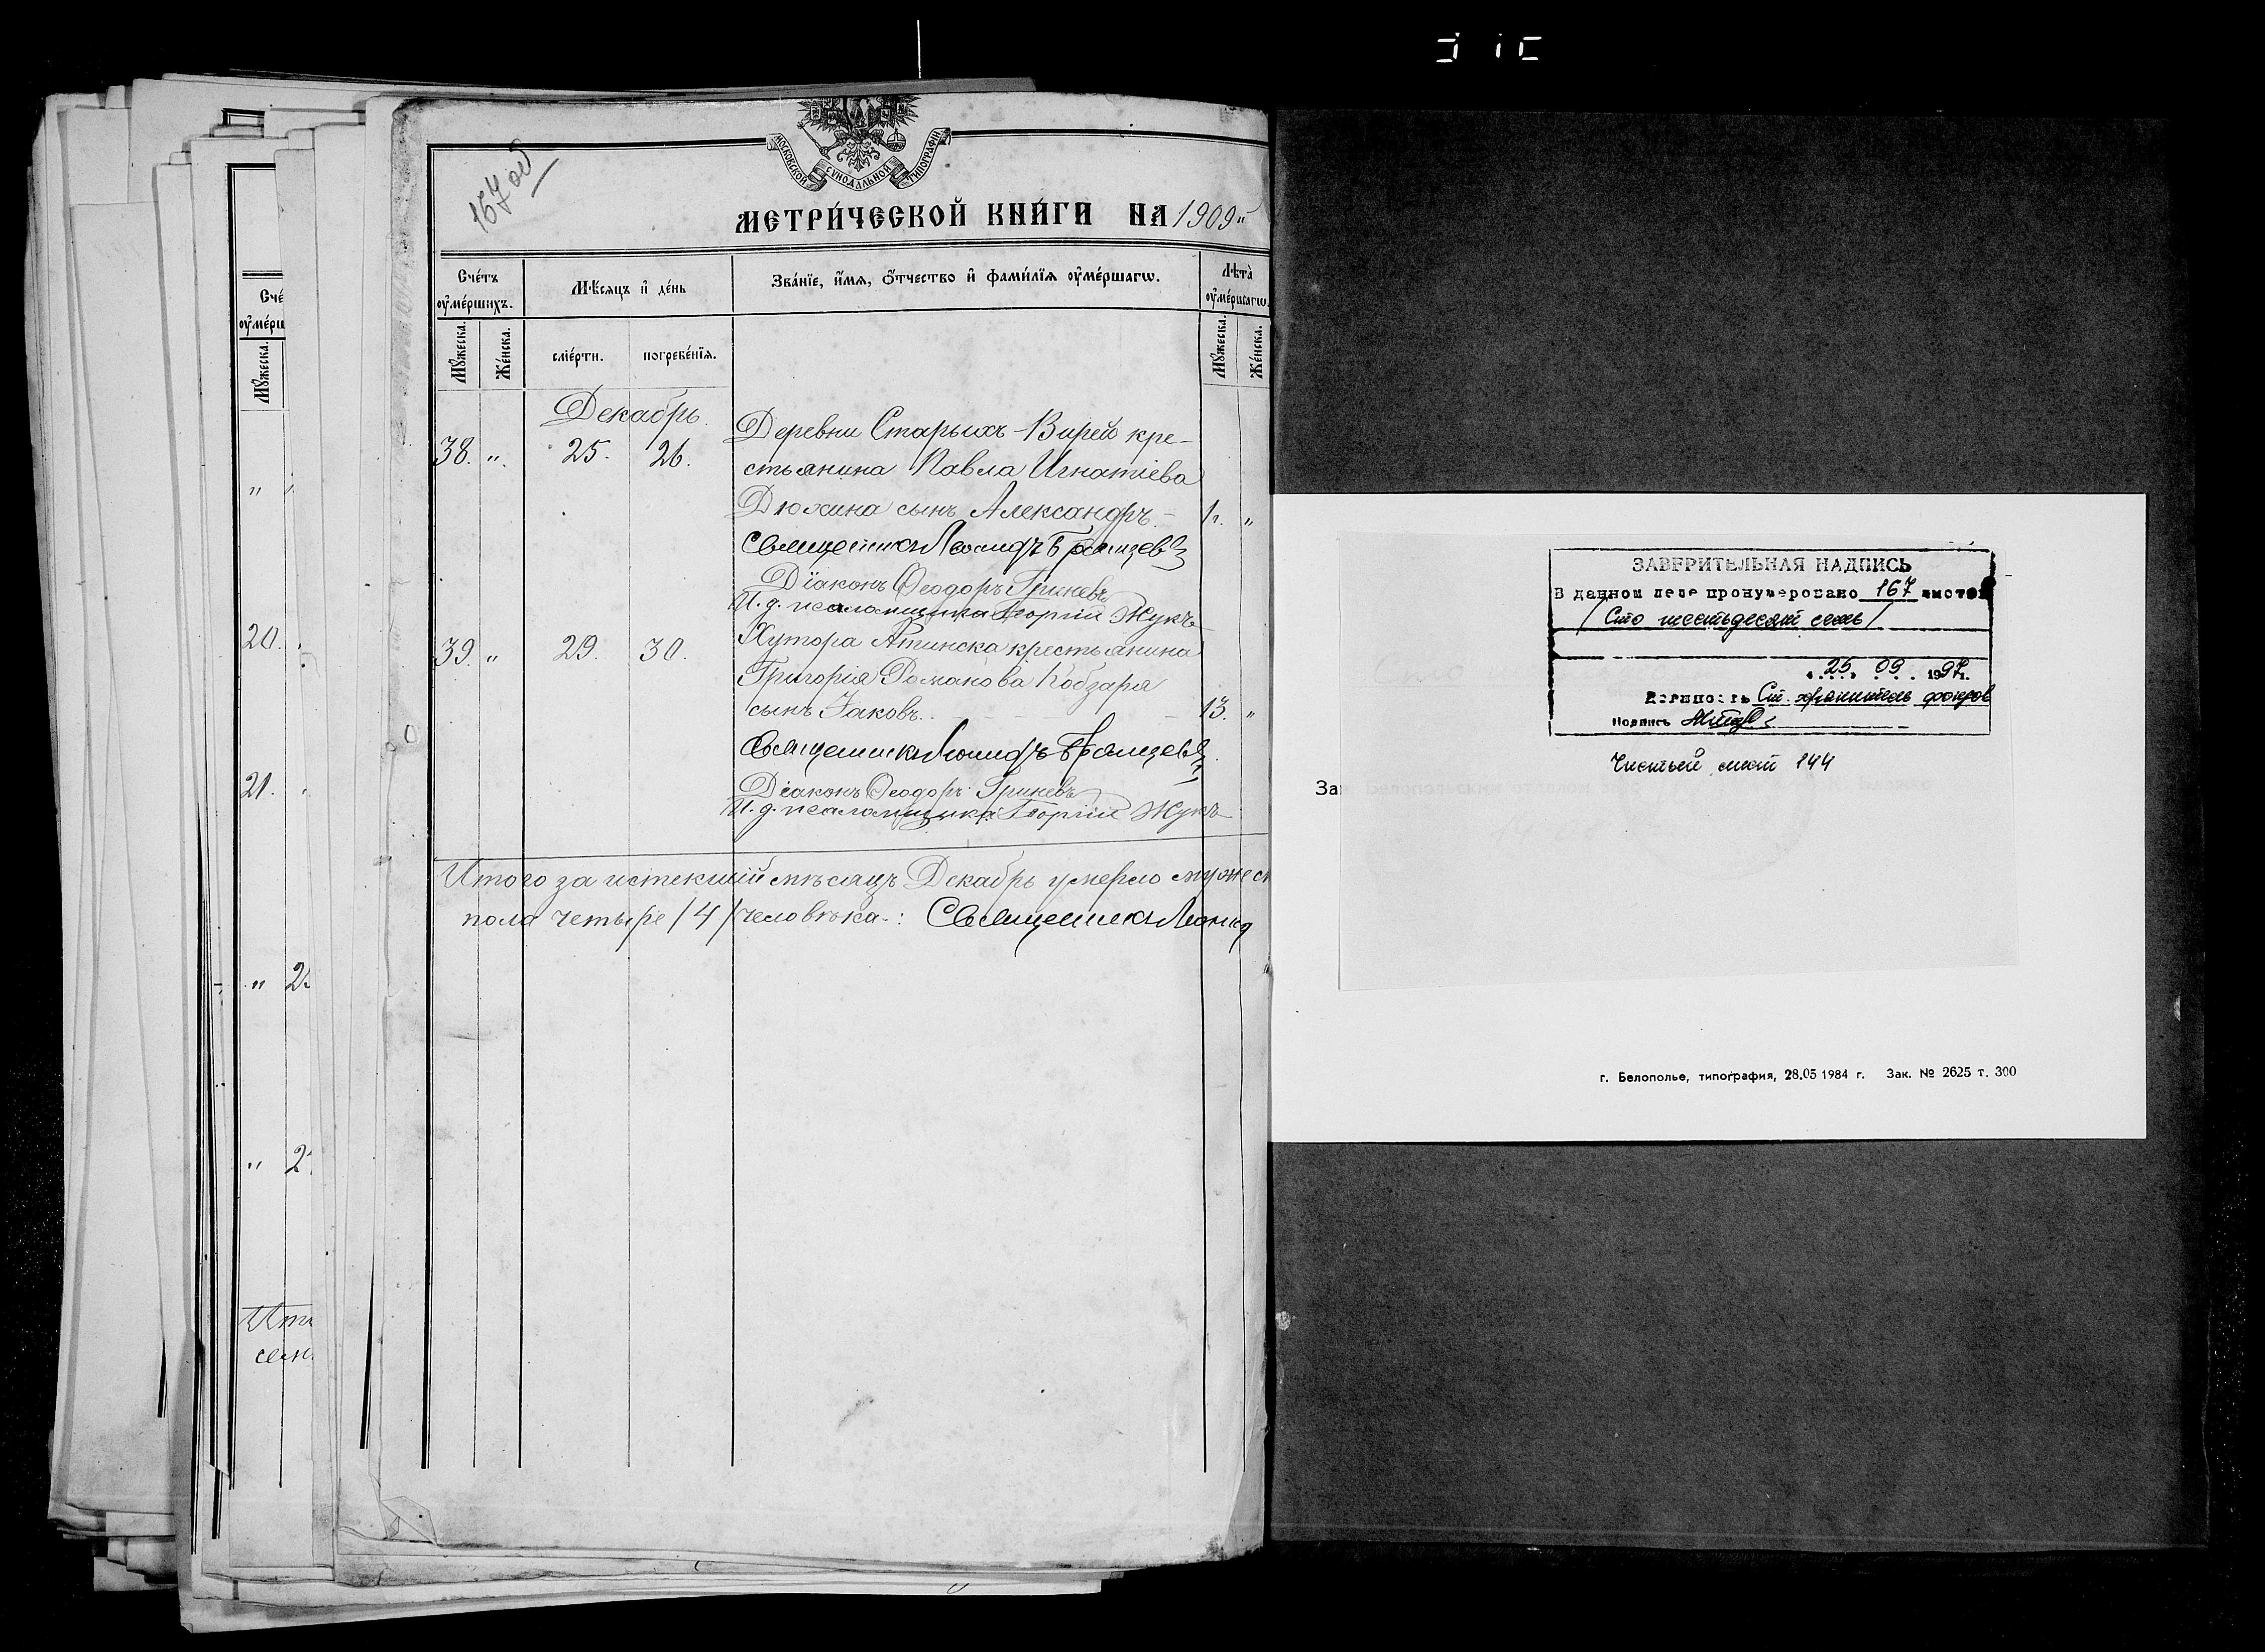 157 об
МОСКОВСКОЙ СѴНОДАЛЬНОЙ ТИПОГРАФІИ
МЕТРИ́ЧЕСКОЙ КНИ́ГИ НА 1909 "
Сче́тъ ᲂу҆ме́ршихъ.
Мѣ́сяцъ и҆ де́нь
Зва́нїе, и҆́мя, ѻ҆́тчество и҆ фами́лїя ᲂу҆ме́ршагѡ.
Лѣта̀ ᲂу҆ме́ршагѡ.
Мꙋ́жеска.
Же́нска.
сме́рти.
погребе́нїя.
Мꙋ́жеска.
Же́нска.
Декабрь.
38. ". 25. 26. Деревни Старыхъ-Вирей кре-
стьянина Павла Игнатіева
Дюжина сынъ Александръ.- 1г. "
Священникъ Леонидъ
Діаконъ Ѳеодоръ Гриневъ
И. д. псаломщика Георгій Жукъ
39. " 29. 30. Хутора Атинска крестьянина
Григорія Романова Кобзаря
сынъ Іаковъ. 13. "
Священникъ Леонидъ
Діаконъ Ѳеодоръ Гриневъ
И. д. псаломщика Георгій Жукъ
Итого за истекшій мѣсяцъ Декабрь умерло мужеск
пола четыре /4/ человѣка.: Священникъ Леонид
Сче
ᲂу҆мерш
Мꙋ́жеска.
"
20.
21.
" 2
" 2
Ито
ЗАВЕРИТЕЛЬНАЯ НАДПИСЬ
В данном деле пронумеровано 167 листов
/Сто шестьдесят семь/
25. 09. 1997г.
Должность Ст. хранитель фондов
Подпись
Чистый лист 144
За
г. Белополье, типография, 28.05 1984 г. Зак. № 2625 т. 300